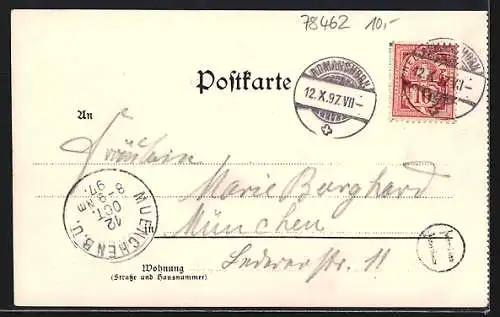 78462 10,-
Postkarte
ROMANSHORN
12.X.97.VII-
12.X.97.VII-
10
An
Fräulein
Marie Burghard
in München
Ledererstr. 11
MUENCHEN B.U.
12. OCT. 97.
8-9 NM
11
Wohnung
(Straße und Hausnummer)